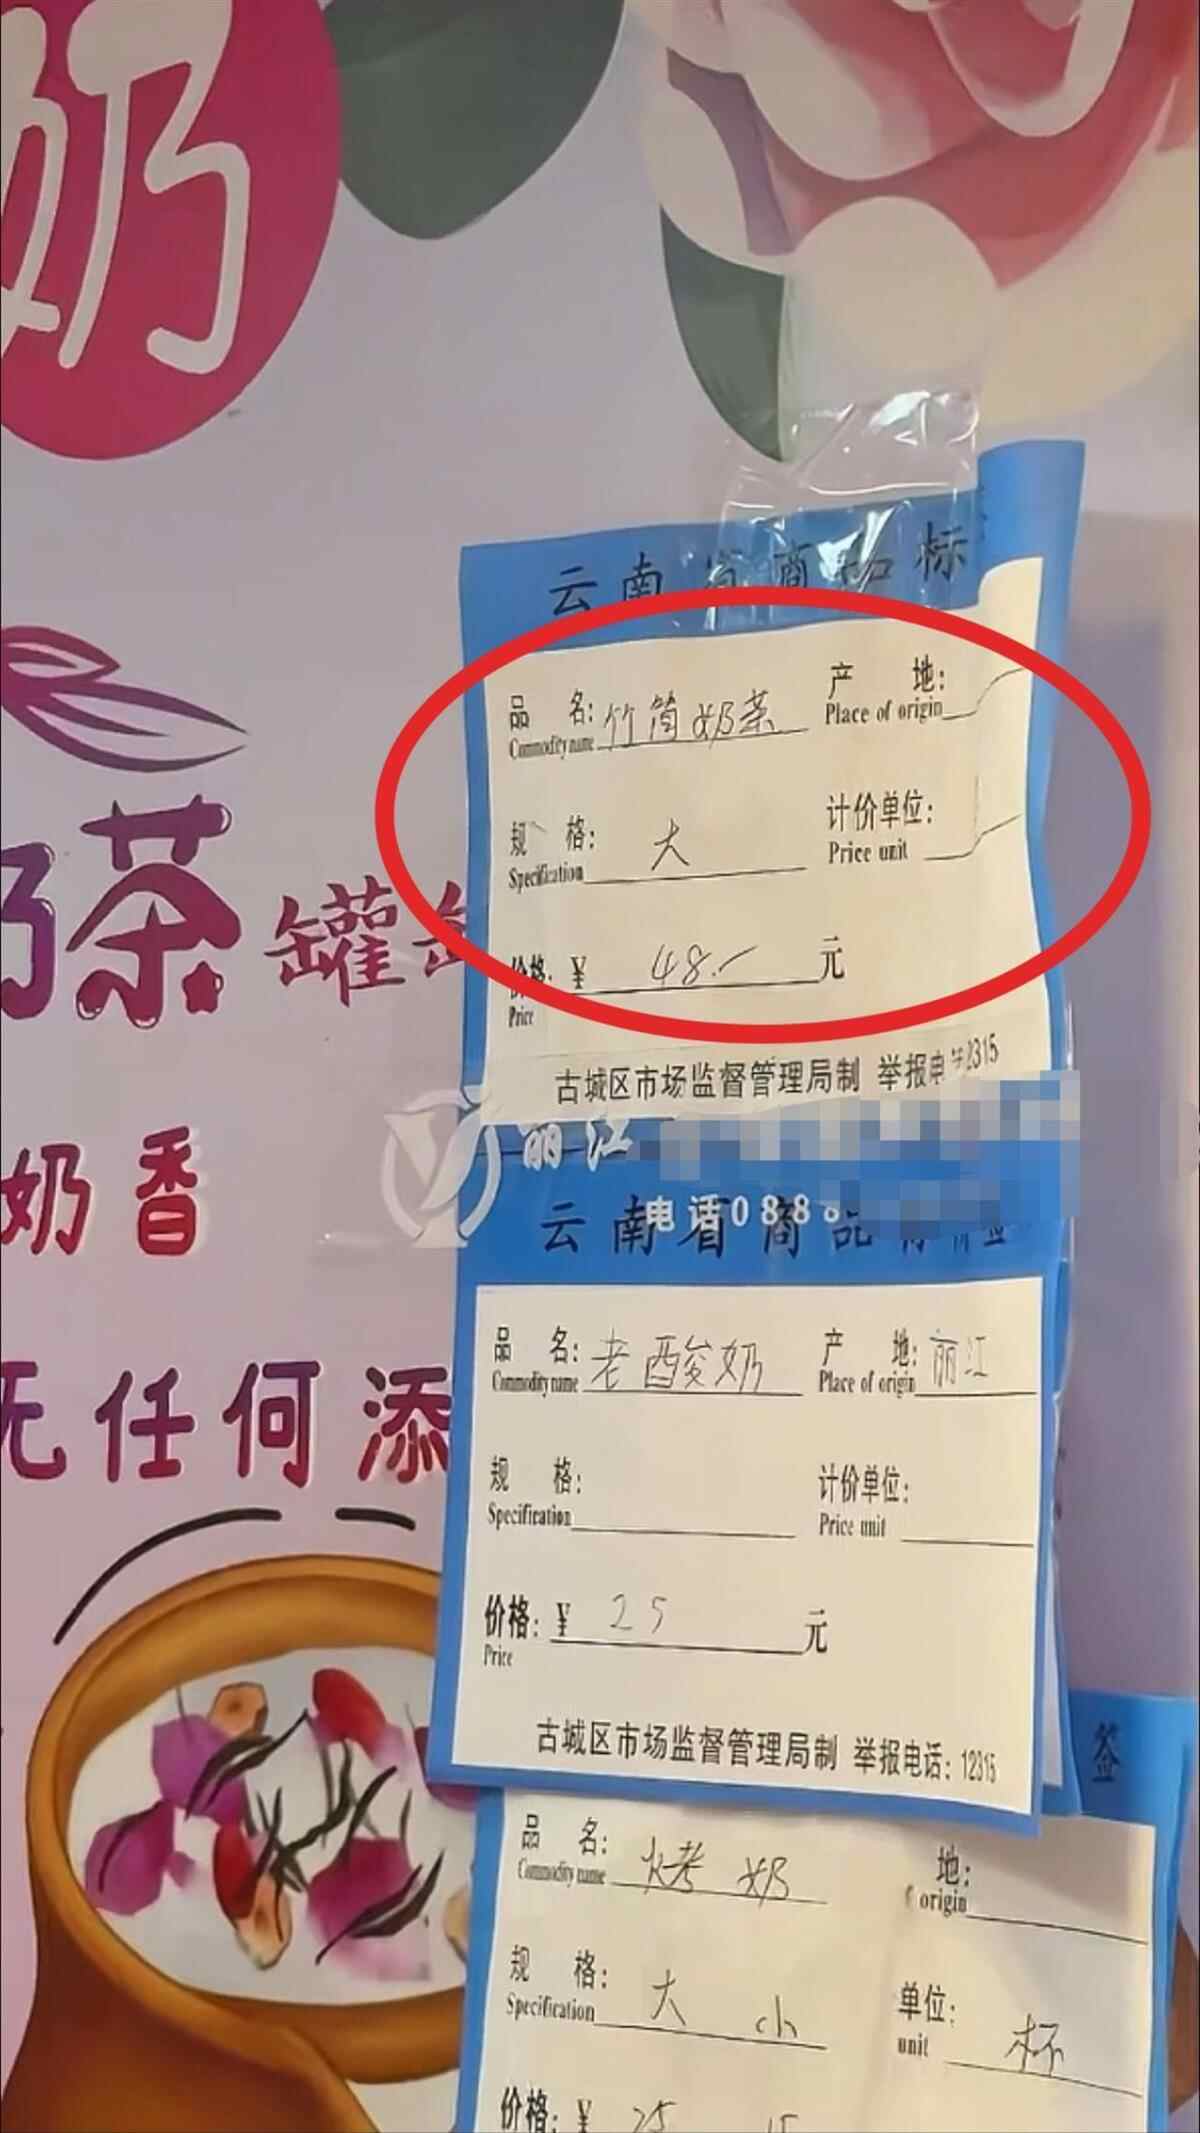 奶
云南省商品标
品 名: 竹筒奶茶 产 地:
Commodity name Place of origin
规 格: 大 计价单位:
Specification Price unit
价格: ¥ 48.- 元
Price
古城区市场监督管理局制 举报电
2315
奶茶 罐
丽江
电话0888
云南省商品标价签
奶香
品 名: 老酸奶 产 地: 丽江
Commodity name Place of origin
无任何添
规 格: 计价单位:
Specification Price unit
价格: ¥ 25 元
Price
古城区市场监督管理局制 举报电话: 12315
签
品 名: 烤奶 地:
Commodity name origin
规 格: 大 小 单位: 杯
Specification unit
价格: ¥ 25 15